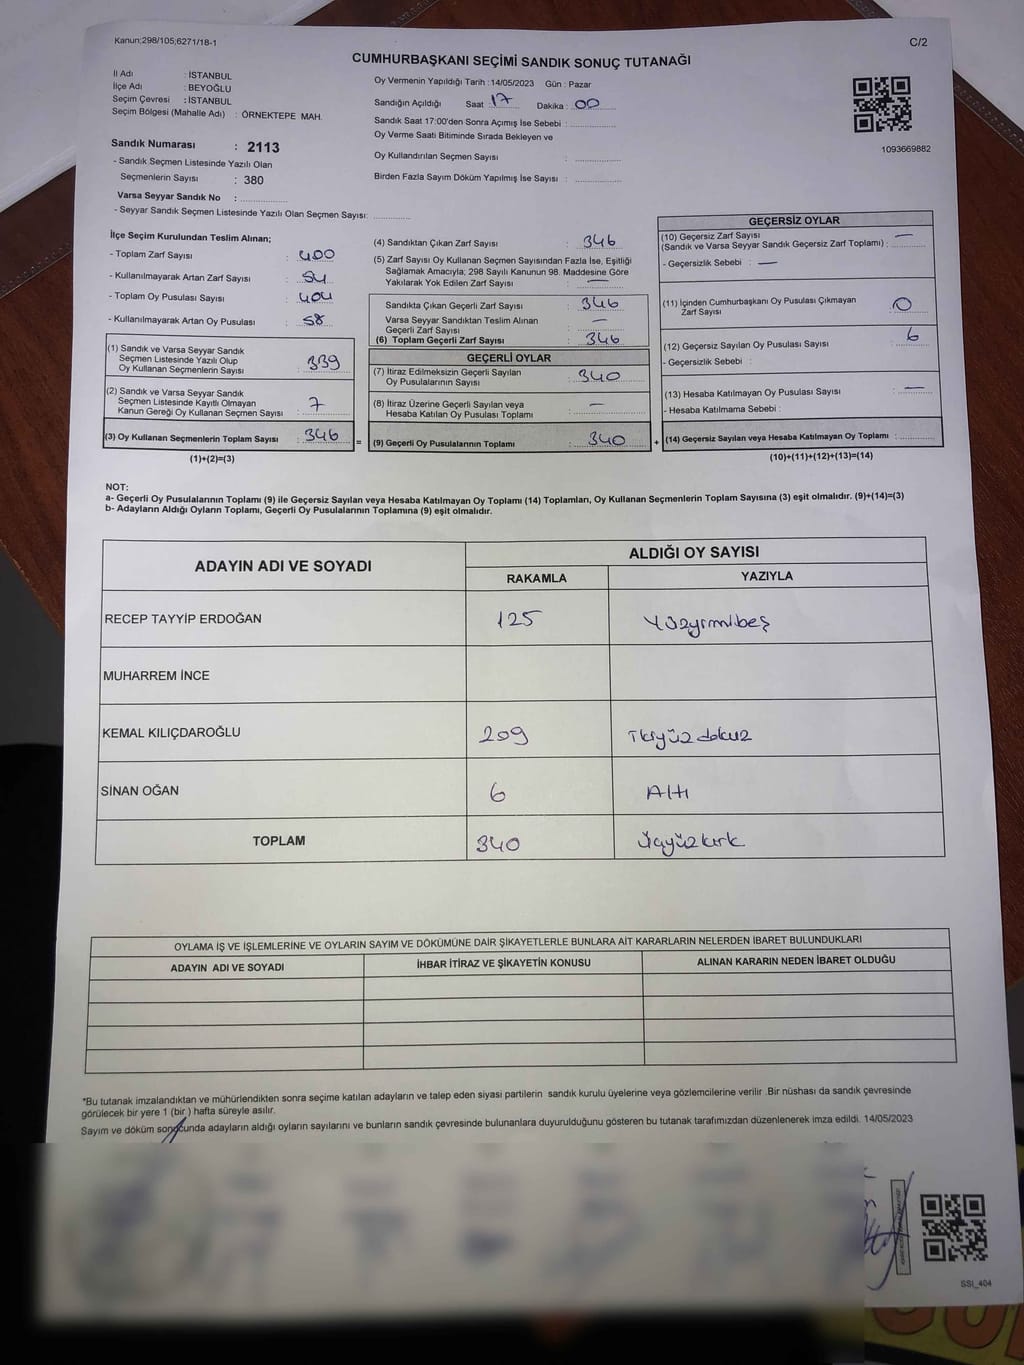 Kanun;298/105;6271/18-1
C/2
CUMHURBAŞKANI SEÇİMİ SANDIK SONUÇ TUTANAĞI
İl Adı : İSTANBUL
İlçe Adı : BEYOĞLU
Seçim Çevresi : İSTANBUL
Seçim Bölgesi (Mahalle Adı) : ÖRNEKTEPE MAH.
Sandık Numarası : 2113
- Sandık Seçmen Listesinde Yazılı Olan
Seçmenlerin Sayısı : 380
Varsa Seyyar Sandık No :
- Seyyar Sandık Seçmen Listesinde Yazılı Olan Seçmen Sayısı:
Oy Vermenin Yapıldığı Tarih : 14/05/2023 Gün : Pazar
Sandığın Açıldığı Saat : 17 Dakika : 00
Sandık Saat 17:00'den Sonra Açımış İse Sebebi :
Oy Verme Saati Bitiminde Sırada Bekleyen ve
Oy Kullandırılan Seçmen Sayısı :
Birden Fazla Sayım Döküm Yapılmış İse Sayısı :
1093669882
İlçe Seçim Kurulundan Teslim Alınan;
- Toplam Zarf Sayısı : 400
- Kullanılmayarak Artan Zarf Sayısı : 54
- Toplam Oy Pusulası Sayısı : 404
- Kullanılmayarak Artan Oy Pusulası : 58
(1) Sandık ve Varsa Seyyar Sandık
Seçmen Listesinde Yazılı Olup
Oy Kullanan Seçmenlerin Sayısı : 339
(2) Sandık ve Varsa Seyyar Sandık
Seçmen Listesinde Kayıtlı Olmayan
Kanun Gereği Oy Kullanan Seçmen Sayısı : 7
(3) Oy Kullanan Seçmenlerin Toplam Sayısı : 346
(1)+(2)=(3)
(4) Sandıktan Çıkan Zarf Sayısı : 346
(5) Zarf Sayısı Oy Kullanan Seçmen Sayısından Fazla İse, Eşitliği
Sağlamak Amacıyla; 298 Sayılı Kanunun 98. Maddesine Göre
Yakılarak Yok Edilen Zarf Sayısı : —
Sandıkta Çıkan Geçerli Zarf Sayısı : 346
Varsa Seyyar Sandıktan Teslim Alınan
Geçerli Zarf Sayısı : —
(6) Toplam Geçerli Zarf Sayısı : 346
GEÇERLİ OYLAR
(7) İtiraz Edilmeksizin Geçerli Sayılan
Oy Pusulalarının Sayısı : 340
(8) İtiraz Üzerine Geçerli Sayılan veya
Hesaba Katılan Oy Pusulası Toplamı : —
= (9) Geçerli Oy Pusulalarının Toplamı : 340
GEÇERSİZ OYLAR
(10) Geçersiz Zarf Sayısı —
(Sandık ve Varsa Seyyar Sandık Geçersiz Zarf Toplamı) :
- Geçersizlik Sebebi : —
(11) İçinden Cumhurbaşkanı Oy Pusulası Çıkmayan
Zarf Sayısı : 0
(12) Geçersiz Sayılan Oy Pusulası Sayısı : 6
- Geçersizlik Sebebi :
(13) Hesaba Katılmayan Oy Pusulası Sayısı : —
- Hesaba Katılmama Sebebi :
+ (14) Geçersiz Sayılan veya Hesaba Katılmayan Oy Toplamı :
(10)+(11)+(12)+(13)=(14)
NOT:
a- Geçerli Oy Pusulalarının Toplamı (9) ile Geçersiz Sayılan veya Hesaba Katılmayan Oy Toplamı (14) Toplamları, Oy Kullanan Seçmenlerin Toplam Sayısına (3) eşit olmalıdır. (9)+(14)=(3)
b- Adayların Aldığı Oyların Toplamı, Geçerli Oy Pusulalarının Toplamına (9) eşit olmalıdır.
ADAYIN ADI VE SOYADI
ALDIĞI OY SAYISI
RAKAMLA YAZIYLA
RECEP TAYYİP ERDOĞAN 125 Yüzyirmibeş
MUHARREM İNCE
KEMAL KILIÇDAROĞLU 209 İkiyüzdokuz
SİNAN OĞAN 6 Altı
TOPLAM 340 Üçyüzkırk
OYLAMA İŞ VE İŞLEMLERİNE VE OYLARIN SAYIM VE DÖKÜMÜNE DAİR ŞİKAYETLERLE BUNLARA AİT KARARLARIN NELERDEN İBARET BULUNDUKLARI
ADAYIN ADI VE SOYADI İHBAR İTİRAZ VE ŞİKAYETİN KONUSU ALINAN KARARIN NEDEN İBARET OLDUĞU
*Bu tutanak imzalandıktan ve mühürlendikten sonra seçime katılan adayların ve talep eden siyasi partilerin sandık kurulu üyelerine veya gözlemcilerine verilir .Bir nüshası da sandık çevresinde
görülecek bir yere 1 (bir ) hafta süreyle asılır.
Sayım ve döküm sonucunda adayların aldığı oyların sayılarını ve bunların sandık çevresinde bulunanlara duyurulduğunu gösteren bu tutanak tarafımızdan düzenlenerek imza edildi. 14/05/2023
SSİ_404